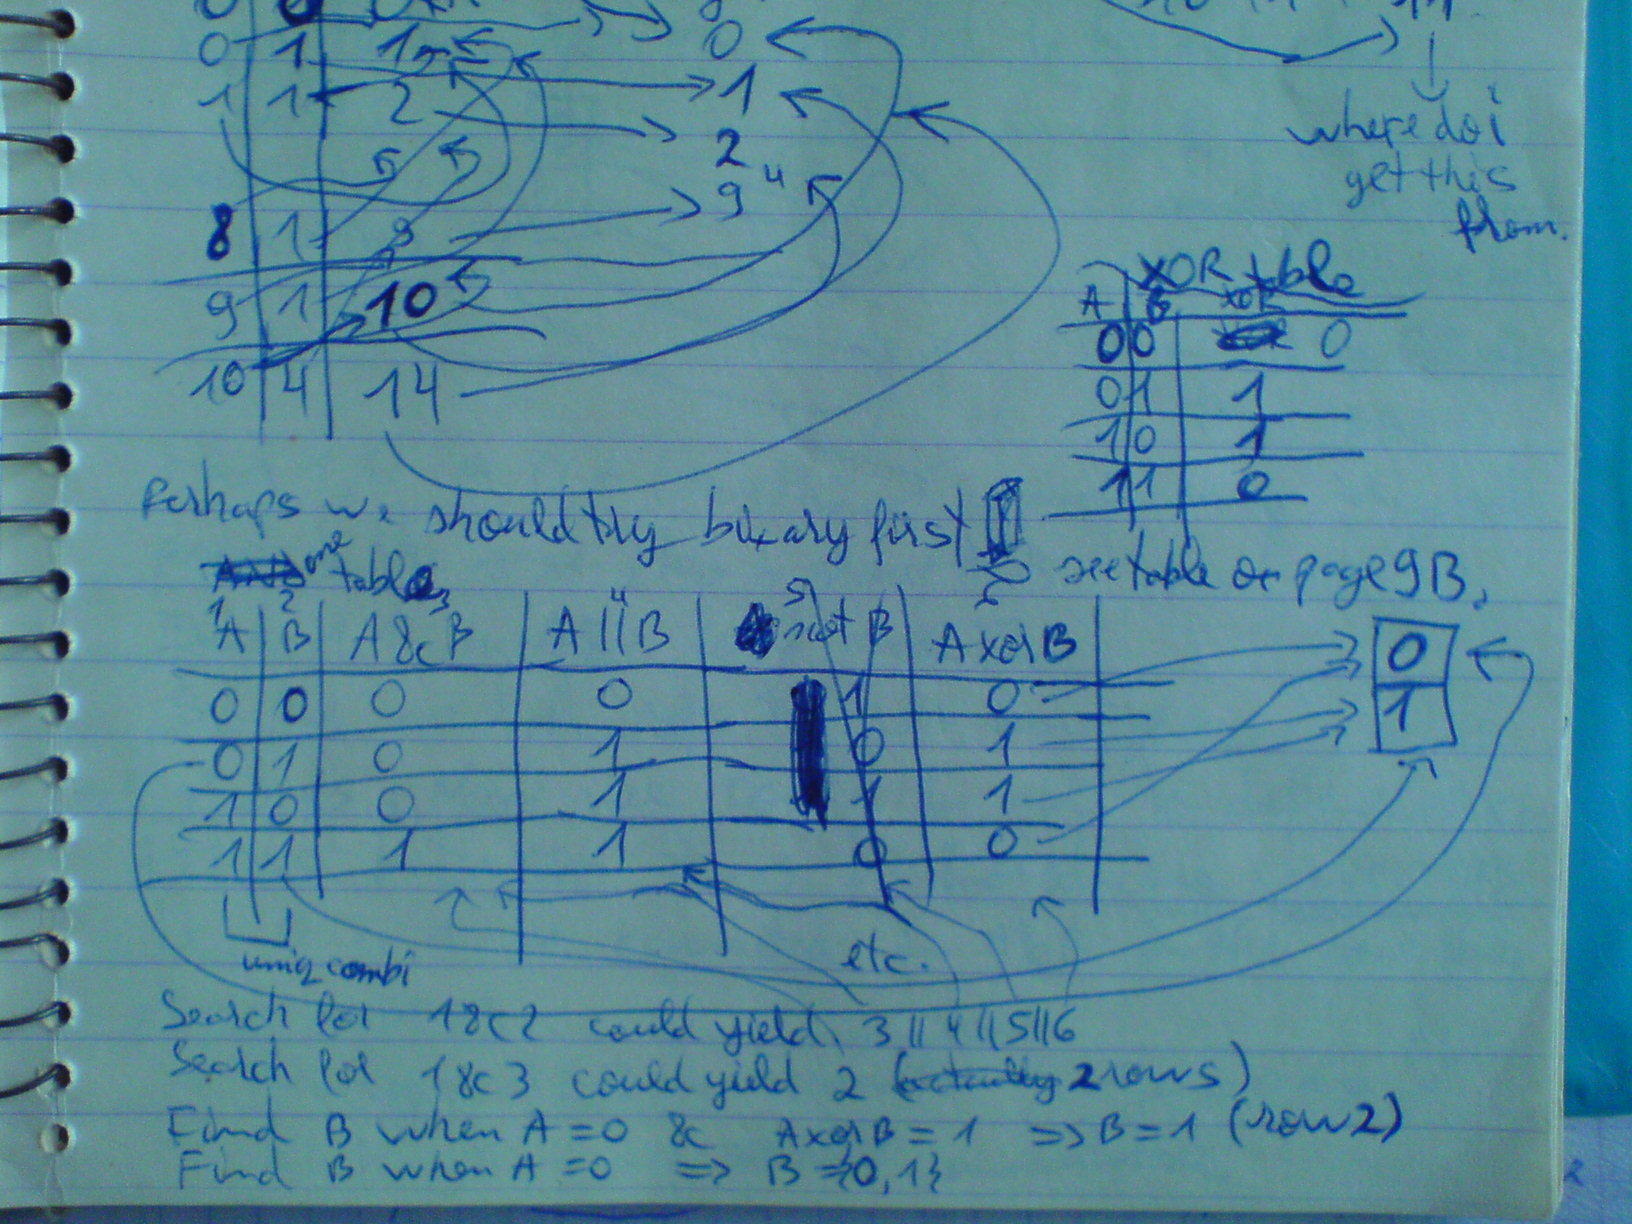 0 1 1 0
1 1 2 1
2
8 1 9 9
9 1 10
10 4 14
where do i
get this
from.
XOR table
A B XOR
0 0 0
0 1 1
1 0 1
1 1 0
Perhaps we should try binary first
see table on page 9B,
one table
1 2 3 4 5 6
A B A & B A || B not B A xor B
0 0 0 0 1 0
0 1 0 1 0 1
1 0 0 1 1 1
1 1 1 1 0 0
0
1
uniq combi
etc.
Search for 1&2 could yield 3||4||5||6
Search for 1&3 could yield 2 (actually 2 rows)
Find B when A=0 & A xor B = 1 => B=1 (row 2)
Find B when A=0 => B={0,1}